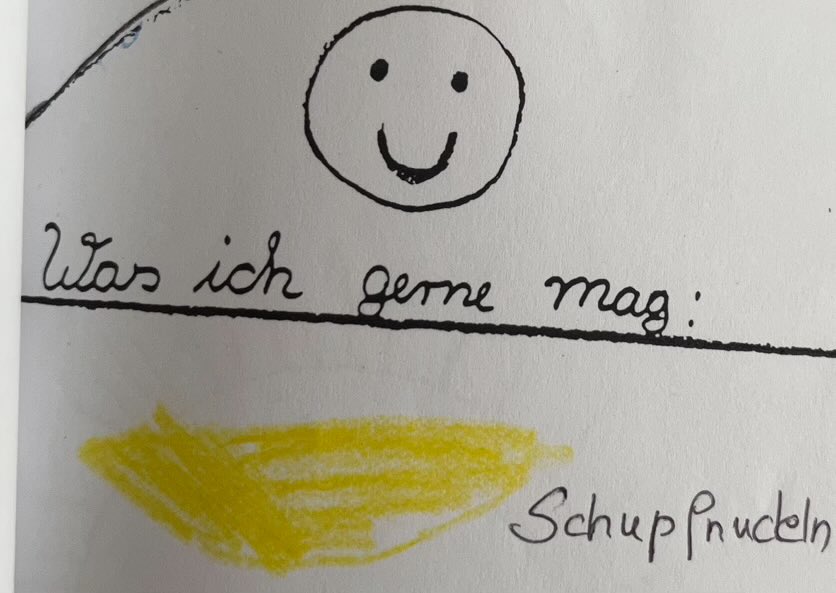 Was ich gerne mag:
Schupfnudeln